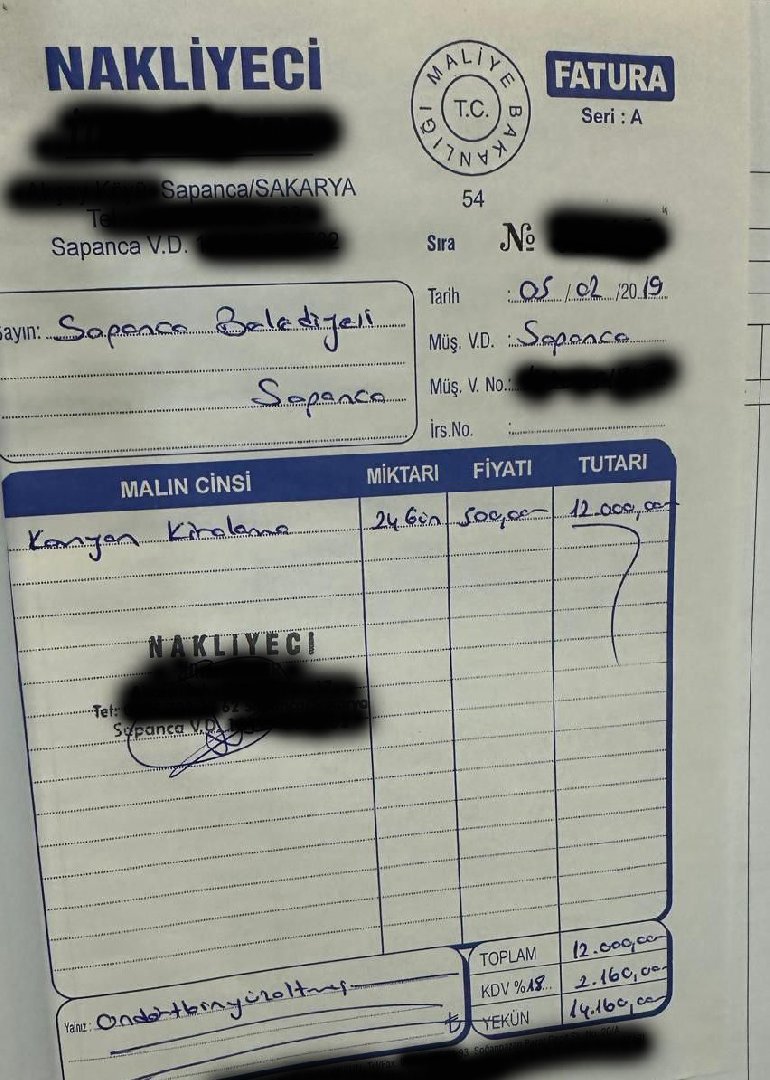 NAKLİYECİ
Sapanca/SAKARYA
Tel
Sapanca V.D.
MALİYE BAKANLIĞI
T.C.
54
FATURA
Seri : A
Sıra №
Tarih : 05/02/2019
Müş. V.D. : Sapanca
Müş. V. No.:
İrs.No. :
Sayın: Sapanca Belediyesi
Sapanca
MALIN CİNSİ MİKTARI FİYATI TUTARI
Kamyon Kiralama 24 Gün 500,00 12.000,00
NAKLİYECİ
Tel:
Sapanca V.D.
TOPLAM 12.000,00
KDV %18 2.160,00
YEKÜN 14.160,00
Yanız : Ondörtbinyüzaltmış
₺